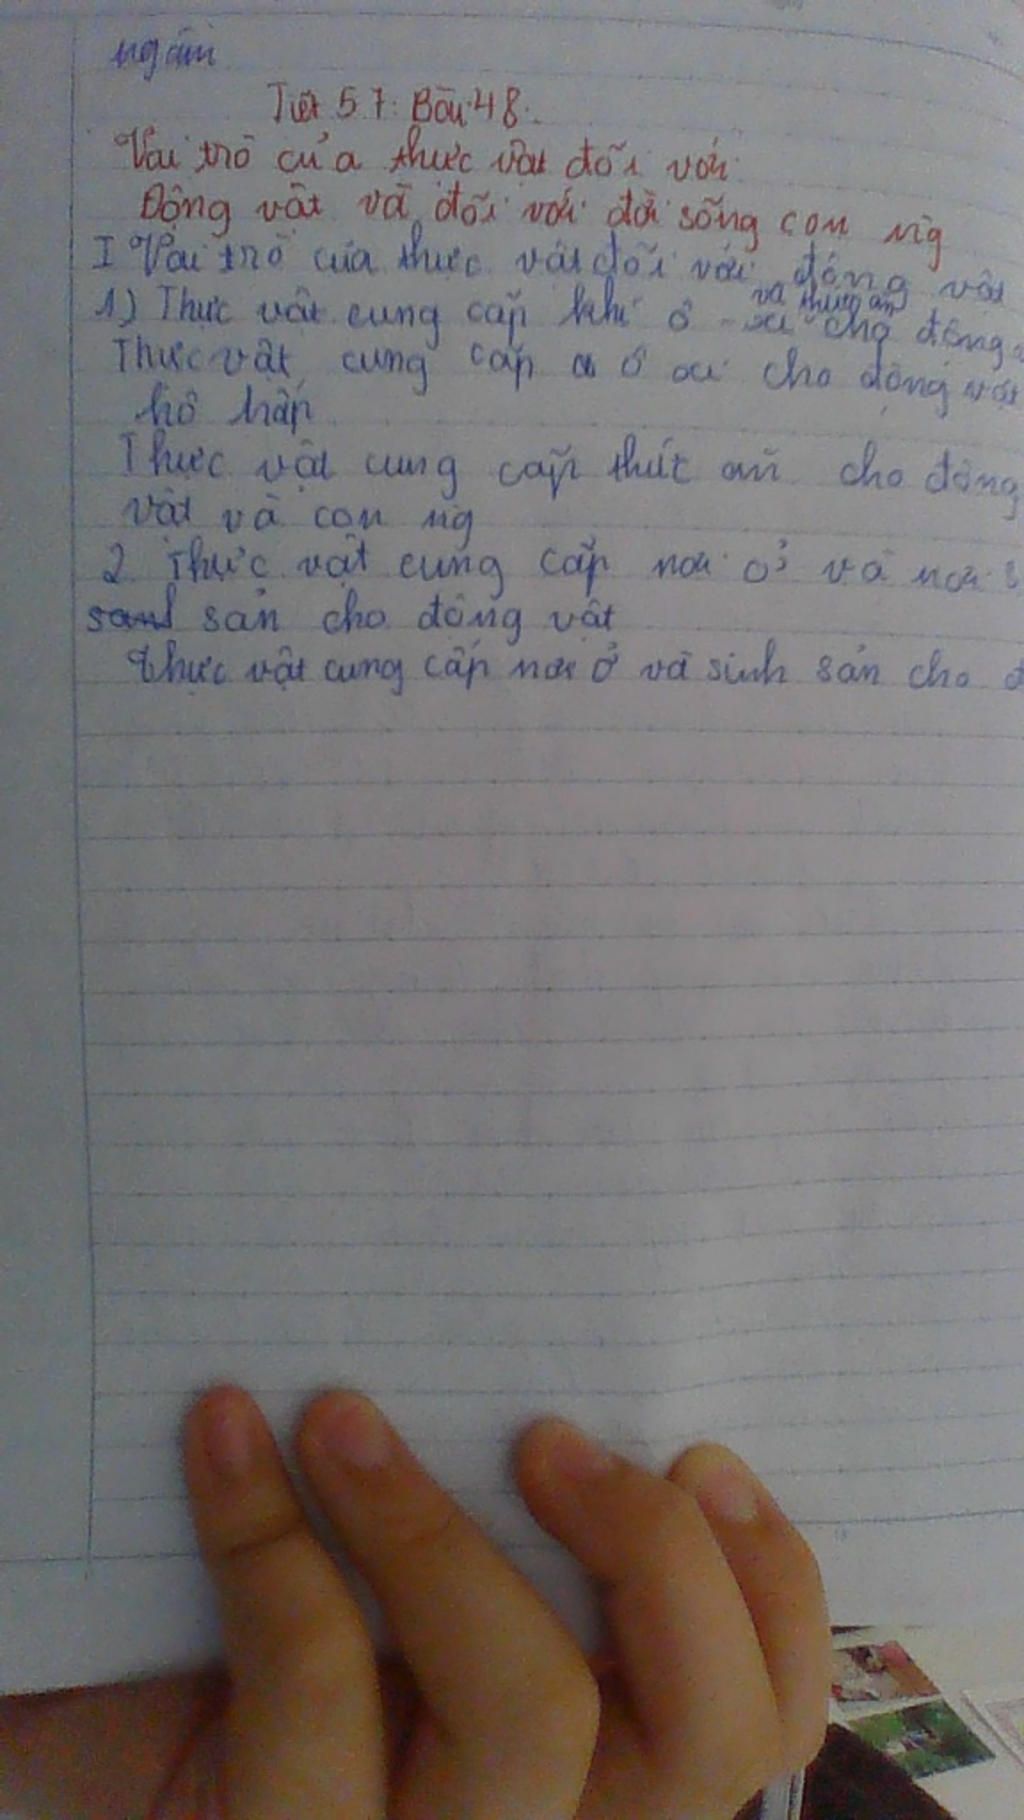 ngầm
Tiết 57: Bài 48
Vai trò của thực vật đối với
Động vật và đối với đời sống con ng
I Vai trò của thực vật đối với động vật
1) Thực vật cung cấp khí ô-xi và thức ăn cho động
Thực vật cung cấp ô xi cho động vật
hô hấp
Thực vật cung cấp thức ăn cho động
vật và con ng
2. Thực vật cung cấp nơi ở và nơi s
sản cho động vật
thực vật cung cấp nơi ở và sinh sản cho đ